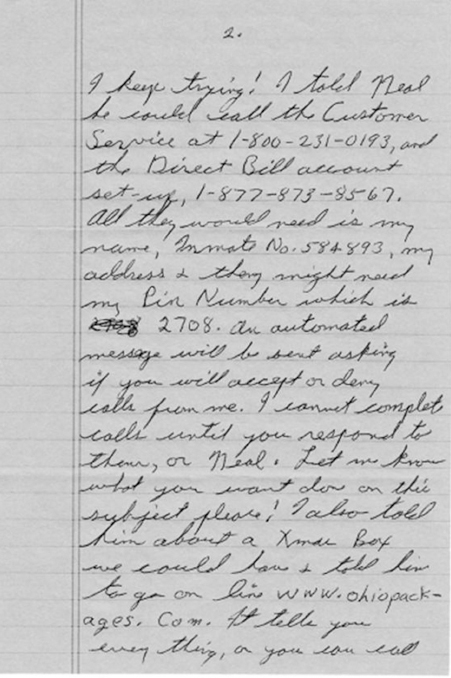 2.
I keep trying! I told Neal
he could call the Customer
Service at 1-800-231-0193, and
the Direct Bill account
set-up, 1-877-873-8567.
All they would need is my
name, Inmate No. 584893, my
address & they might need
my Pin Number which is
2708. An automated
message will be sent asking
if you will accept or deny
calls from me. I cannot complete
calls until you respond to
them, or Neal. Let me know
what you want done on this
subject please! I also told
him about a Xmas Box
we could have & told him
to go on line www.ohiopack-
ages.Com. It tells you
every thing, or you can call